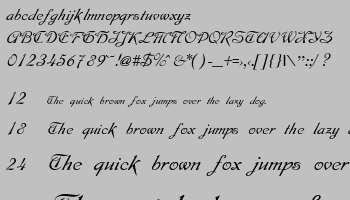 abcdefghijklmnopqrstuvwxyz
ABCDEFGHIJKLMNOPQRSTUVWXYZ
0123456789~!@#$%^&*()-_+=>,<.[]{}|\"':;/?
12 The quick brown fox jumps over the lazy dog.
18 The quick brown fox jumps over the lazy
24 The quick brown fox jumps over